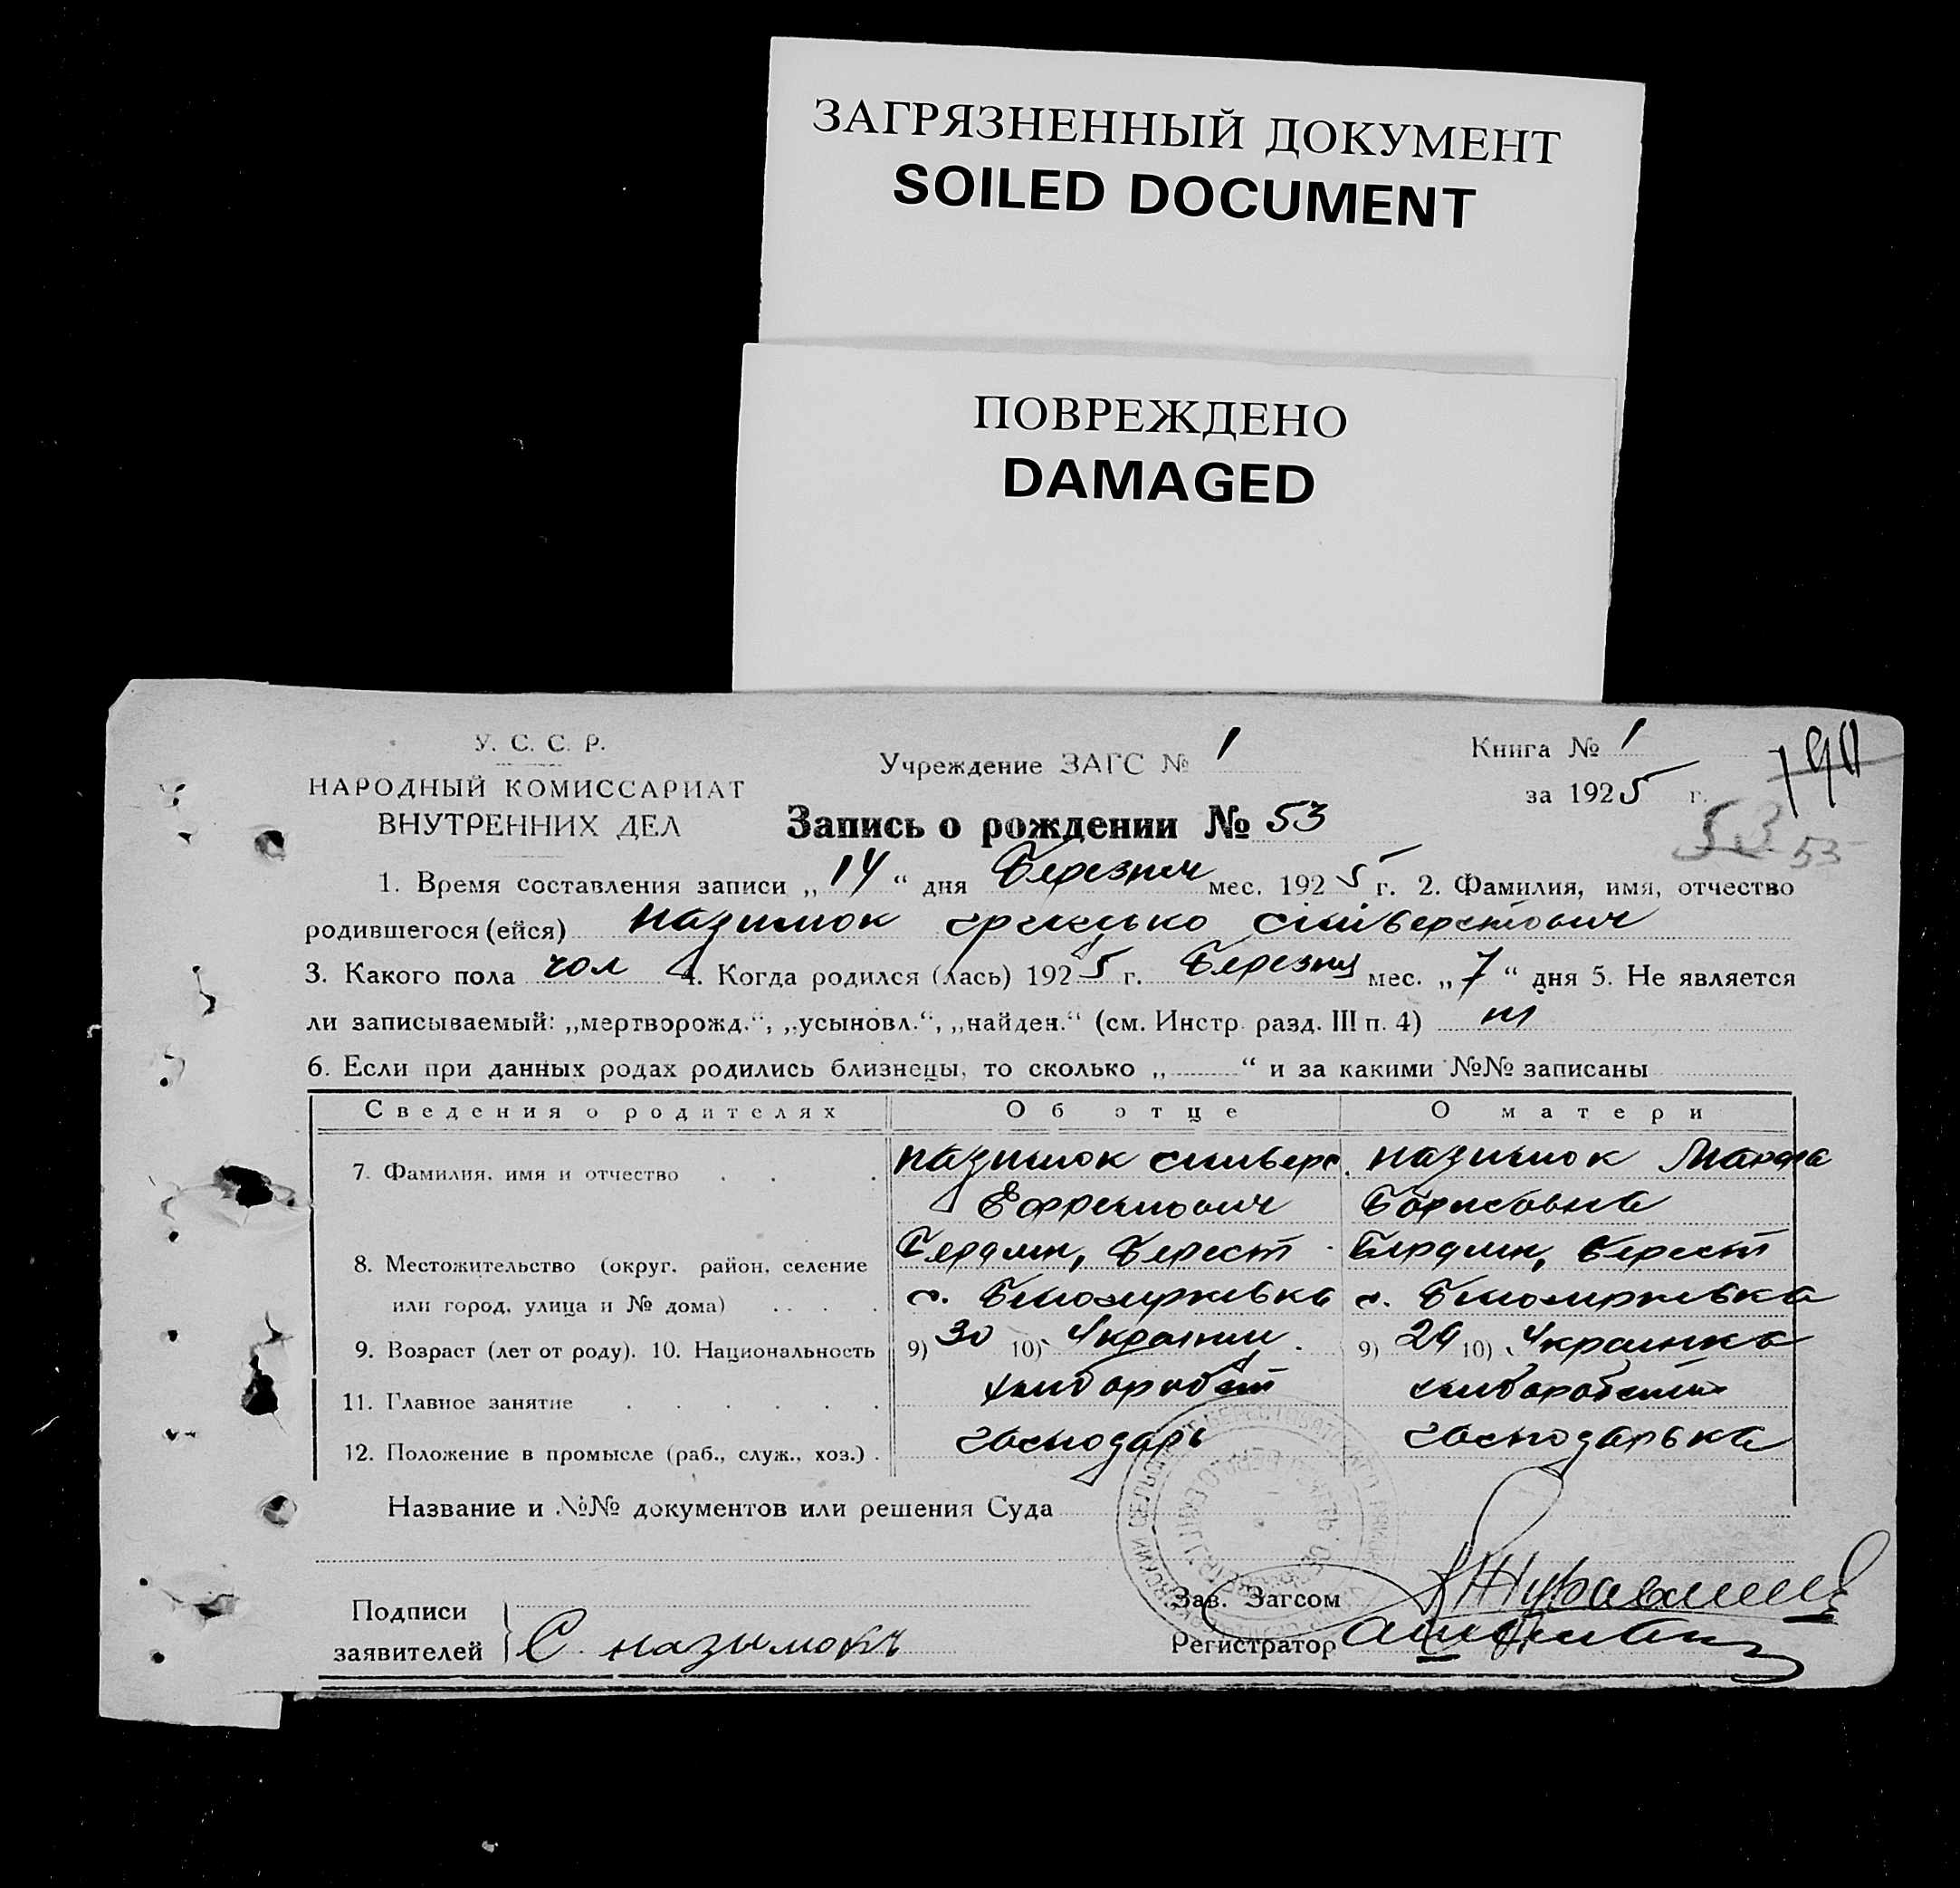 ЗАГРЯЗНЕННЫЙ ДОКУМЕНТ
SOILED DOCUMENT
ПОВРЕЖДЕНО
DAMAGED
У. С. С. Р.
НАРОДНЫЙ КОМИССАРИАТ
ВНУТРЕННИХ ДЕЛ
Учреждение ЗАГС № 1
Книга № 1
за 1925 г.
190
Запись о рождении № 53
53 53
1. Время составления записи „14“ дня Березня мес. 1925 г. 2. Фамилия, имя, отчество
родившегося (ейся) Назимок Грицько Сильверстович
3. Какого пола чол 4. Когда родился (лась) 1925 г. Березня мес. „7“ дня 5. Не является
ли записываемый: „мертворожд.“, „усыновл.“, „найден.“ (см. Инстр. разд. III п. 4) ні
6. Если при данных родах родились близнецы, то сколько „ “ и за какими №№ записаны
Сведения о родителях Об отце О матери
7. Фамилия, имя и отчество Назимок Сильверс. Назимок
Ефремович Борисовна
8. Местожительство (округ, район, селение Бердян, Берест. Бердян, Берест
или город, улица и № дома) с. с.
9. Возраст (лет от роду). 10. Национальность 9) 30 10) Украінец. 9) 29 10) Украинка
11. Главное занятие хлибороб
12. Положение в промысле (раб., служ., хоз.) господарь господарька
Название и №№ документов или решения Суда
Подписи
заявителей С назымокъ
Зав. Загсом
Регистратор